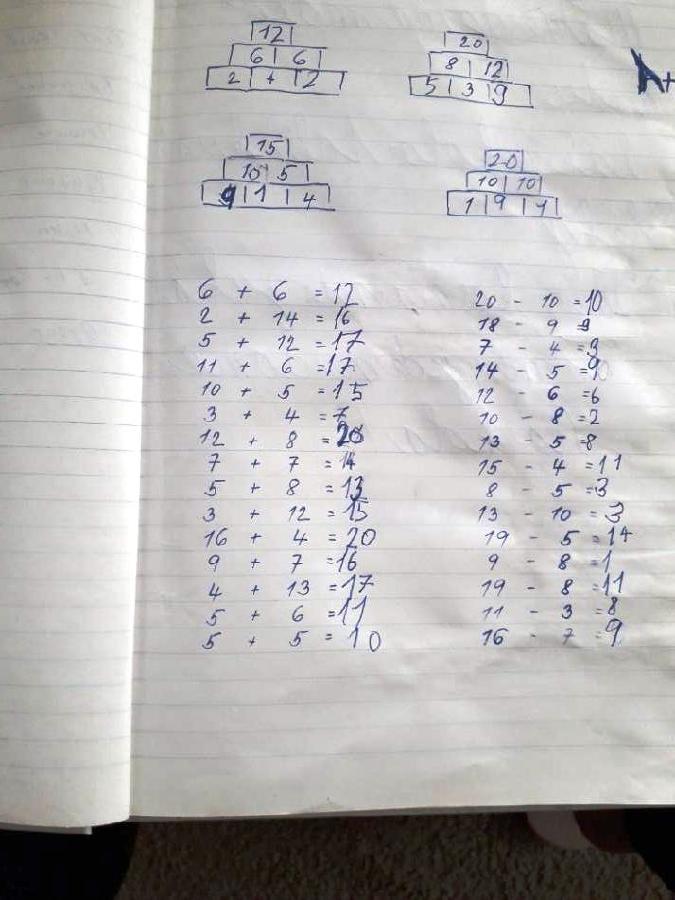 12
6 6
2 4 2
20
8 12
5 3 9
A+
15
10 5
9 1 4
20
10 10
1 9 1
6 + 6 = 12
2 + 14 = 16
5 + 12 = 17
11 + 6 = 17
10 + 5 = 15
3 + 4 = 7
12 + 8 = 20
7 + 7 = 14
5 + 8 = 13
3 + 12 = 15
16 + 4 = 20
9 + 7 = 16
4 + 13 = 17
5 + 6 = 11
5 + 5 = 10
20 - 10 = 10
18 - 9 = 9
7 - 4 = 3
14 - 5 = 9
12 - 6 = 6
10 - 8 = 2
13 - 5 = 8
15 - 4 = 11
8 - 5 = 3
13 - 10 = 3
19 - 5 = 14
9 - 8 = 1
19 - 8 = 11
11 - 3 = 8
16 - 7 = 9